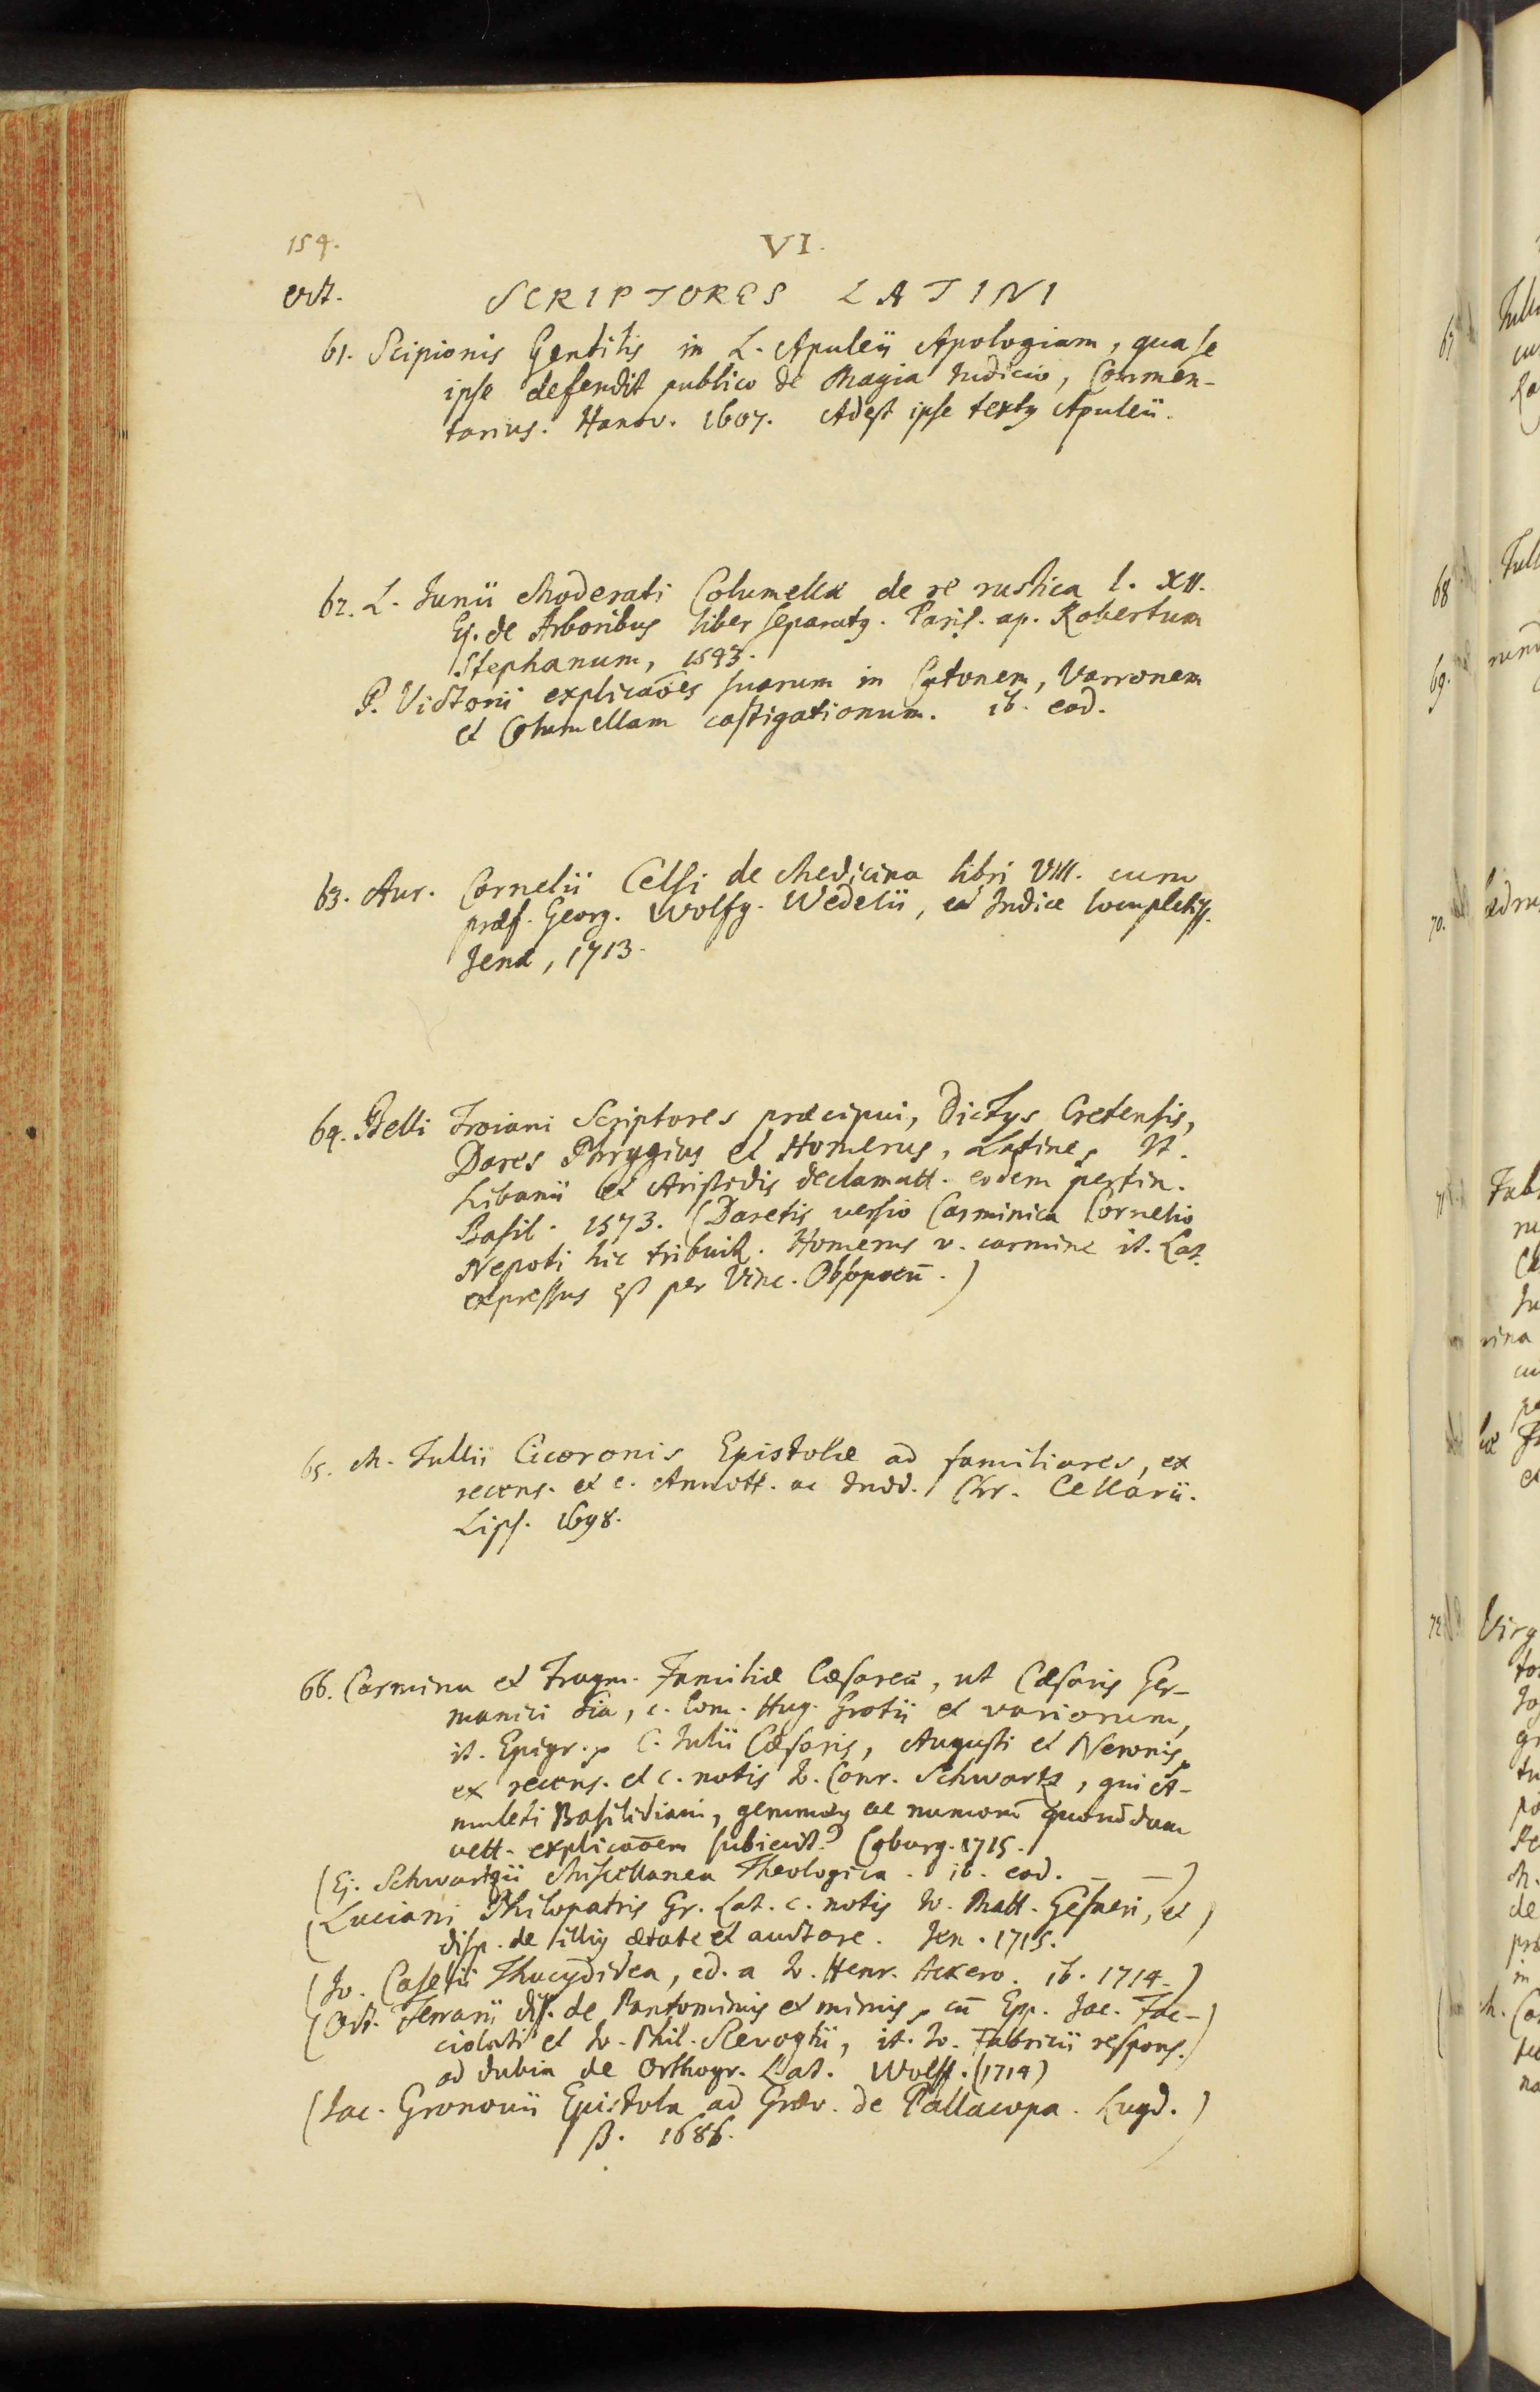 154.
VI.
oct.
SCRIPTORES LATINI
61. Scipionis Gentilis in L. Apuleii Apologiam, qua se
ipse defendit publico de Magia Iudicio, Commen-
tarius. Hanov. 1607. Adest ipse textus Apuleii.
62. L. Iunii Moderati Columellæ de re rustica l. XII.
Ej. de Arboribus liber separatus. Paris. ap. Robertum
Stephanum, 1543.
P. Victorii explicaões suarum in Catonem, Varronem
et Columellam castigationum. ib. eod.
63. Aur. Cornelii Celsi de Medicina libri VIII. cum
præf. Georg. Wolfg. Wedelii, et Indice locupletiss.
Jenæ, 1713.
64. Belli Troiani Scriptores præcipui, Dictys Cretensis,
Dares Phrygius et Homerus, Latine, It.
Libanii et Aristidis declamatt. eodem pertin.
Basil. 1573. (Daretis versio Carminica Cornelio
Nepoti hic tribuitur. Homerus v. carmine it. Lat.
expressus est per Vinc. Obsopoeū.)
65. M. Tullii Ciceronis Epistolæ ad familiares, ex
recens. et c. Annott. ac Indd. Chr. Cellarii.
Lips. 1698.
66. Carmina et Fragm. Familiæ Cæsareæ, ut Cæsaris Ger-
manici , c. Com. Hug. Grotii et variorum,
it. Epigr. C. Iulii Cæsaris, Augusti et Neronis,
ex recens. et c. notis Io. Conr. Schwartz, qui A-
muleti Basilidiani, gemmæq ac numorū quorūdam
vett. explicaõem subiecit. Coburg. 1715.
(Ej. Schwartzii Miscellanea Theologica. ib. eod. — —)
(Luciani Philopatris Gr. Lat. c. notis Io. Matt. Gesneri, et
disp. de illius ætate et auctore. Jen. 1715.)
(Io. Caselii Thucydidea, ed. a Io. Henr. Ackero. ib. 1714.)
(Oct. Ferrarii diss. de Pantomimis et mimis, cū Epp. Jac. Fac-
ciolati et Io. Phil. Slevogtii, it. Io. Fabricii respons.
ad dubia de Orthogr. Lat. Wolff. (1714)
(Iac. Gronovii Epistola ad Græv. de Pallacopa. Lugd.
B. 1686.)